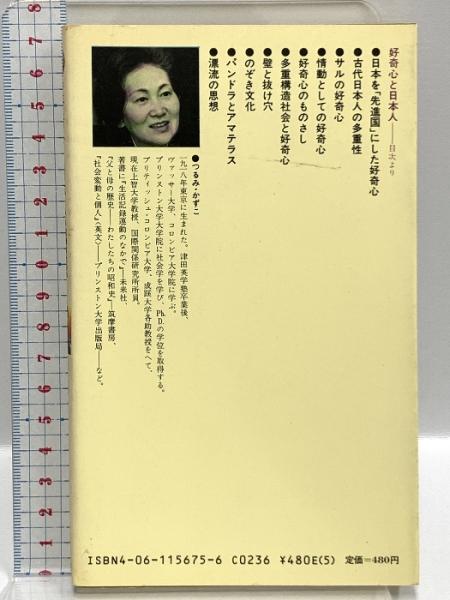 好奇心と日本人――目次より
●日本を「先進国」にした好奇心
●古代日本人の多重性
●サルの好奇心
●情動としての好奇心
●好奇心のものさし
●多重構造社会と好奇心
●壁と抜け穴
●のぞき文化
●パンドラとアマテラス
●漂流の思想
●つるみ・かずこ
一九一八年東京に生まれた。津田英学塾卒業後、
ヴァッサー大学、コロンビア大学院に学ぶ。
プリンストン大学大学院に社会学を学び、Ph.D.の学位を取得する。
ブリティッシュ・コロンビア大学、成蹊大学各助教授をへて、
現在上智大学教授、国際関係研究所所員。
著書に『生活記録運動のなかで』―未来社、
『父と母の歴史――わたしたちの昭和史』―筑摩書房、
『社会変動と個人』(英文)―プリンストン大学出版局――など。
ISBN4-06-115675-6 C0236 ¥480E(5) 定価=480円
8
7
6
5
4
3
2
1
9
8
7
6
5
4
3
2
1